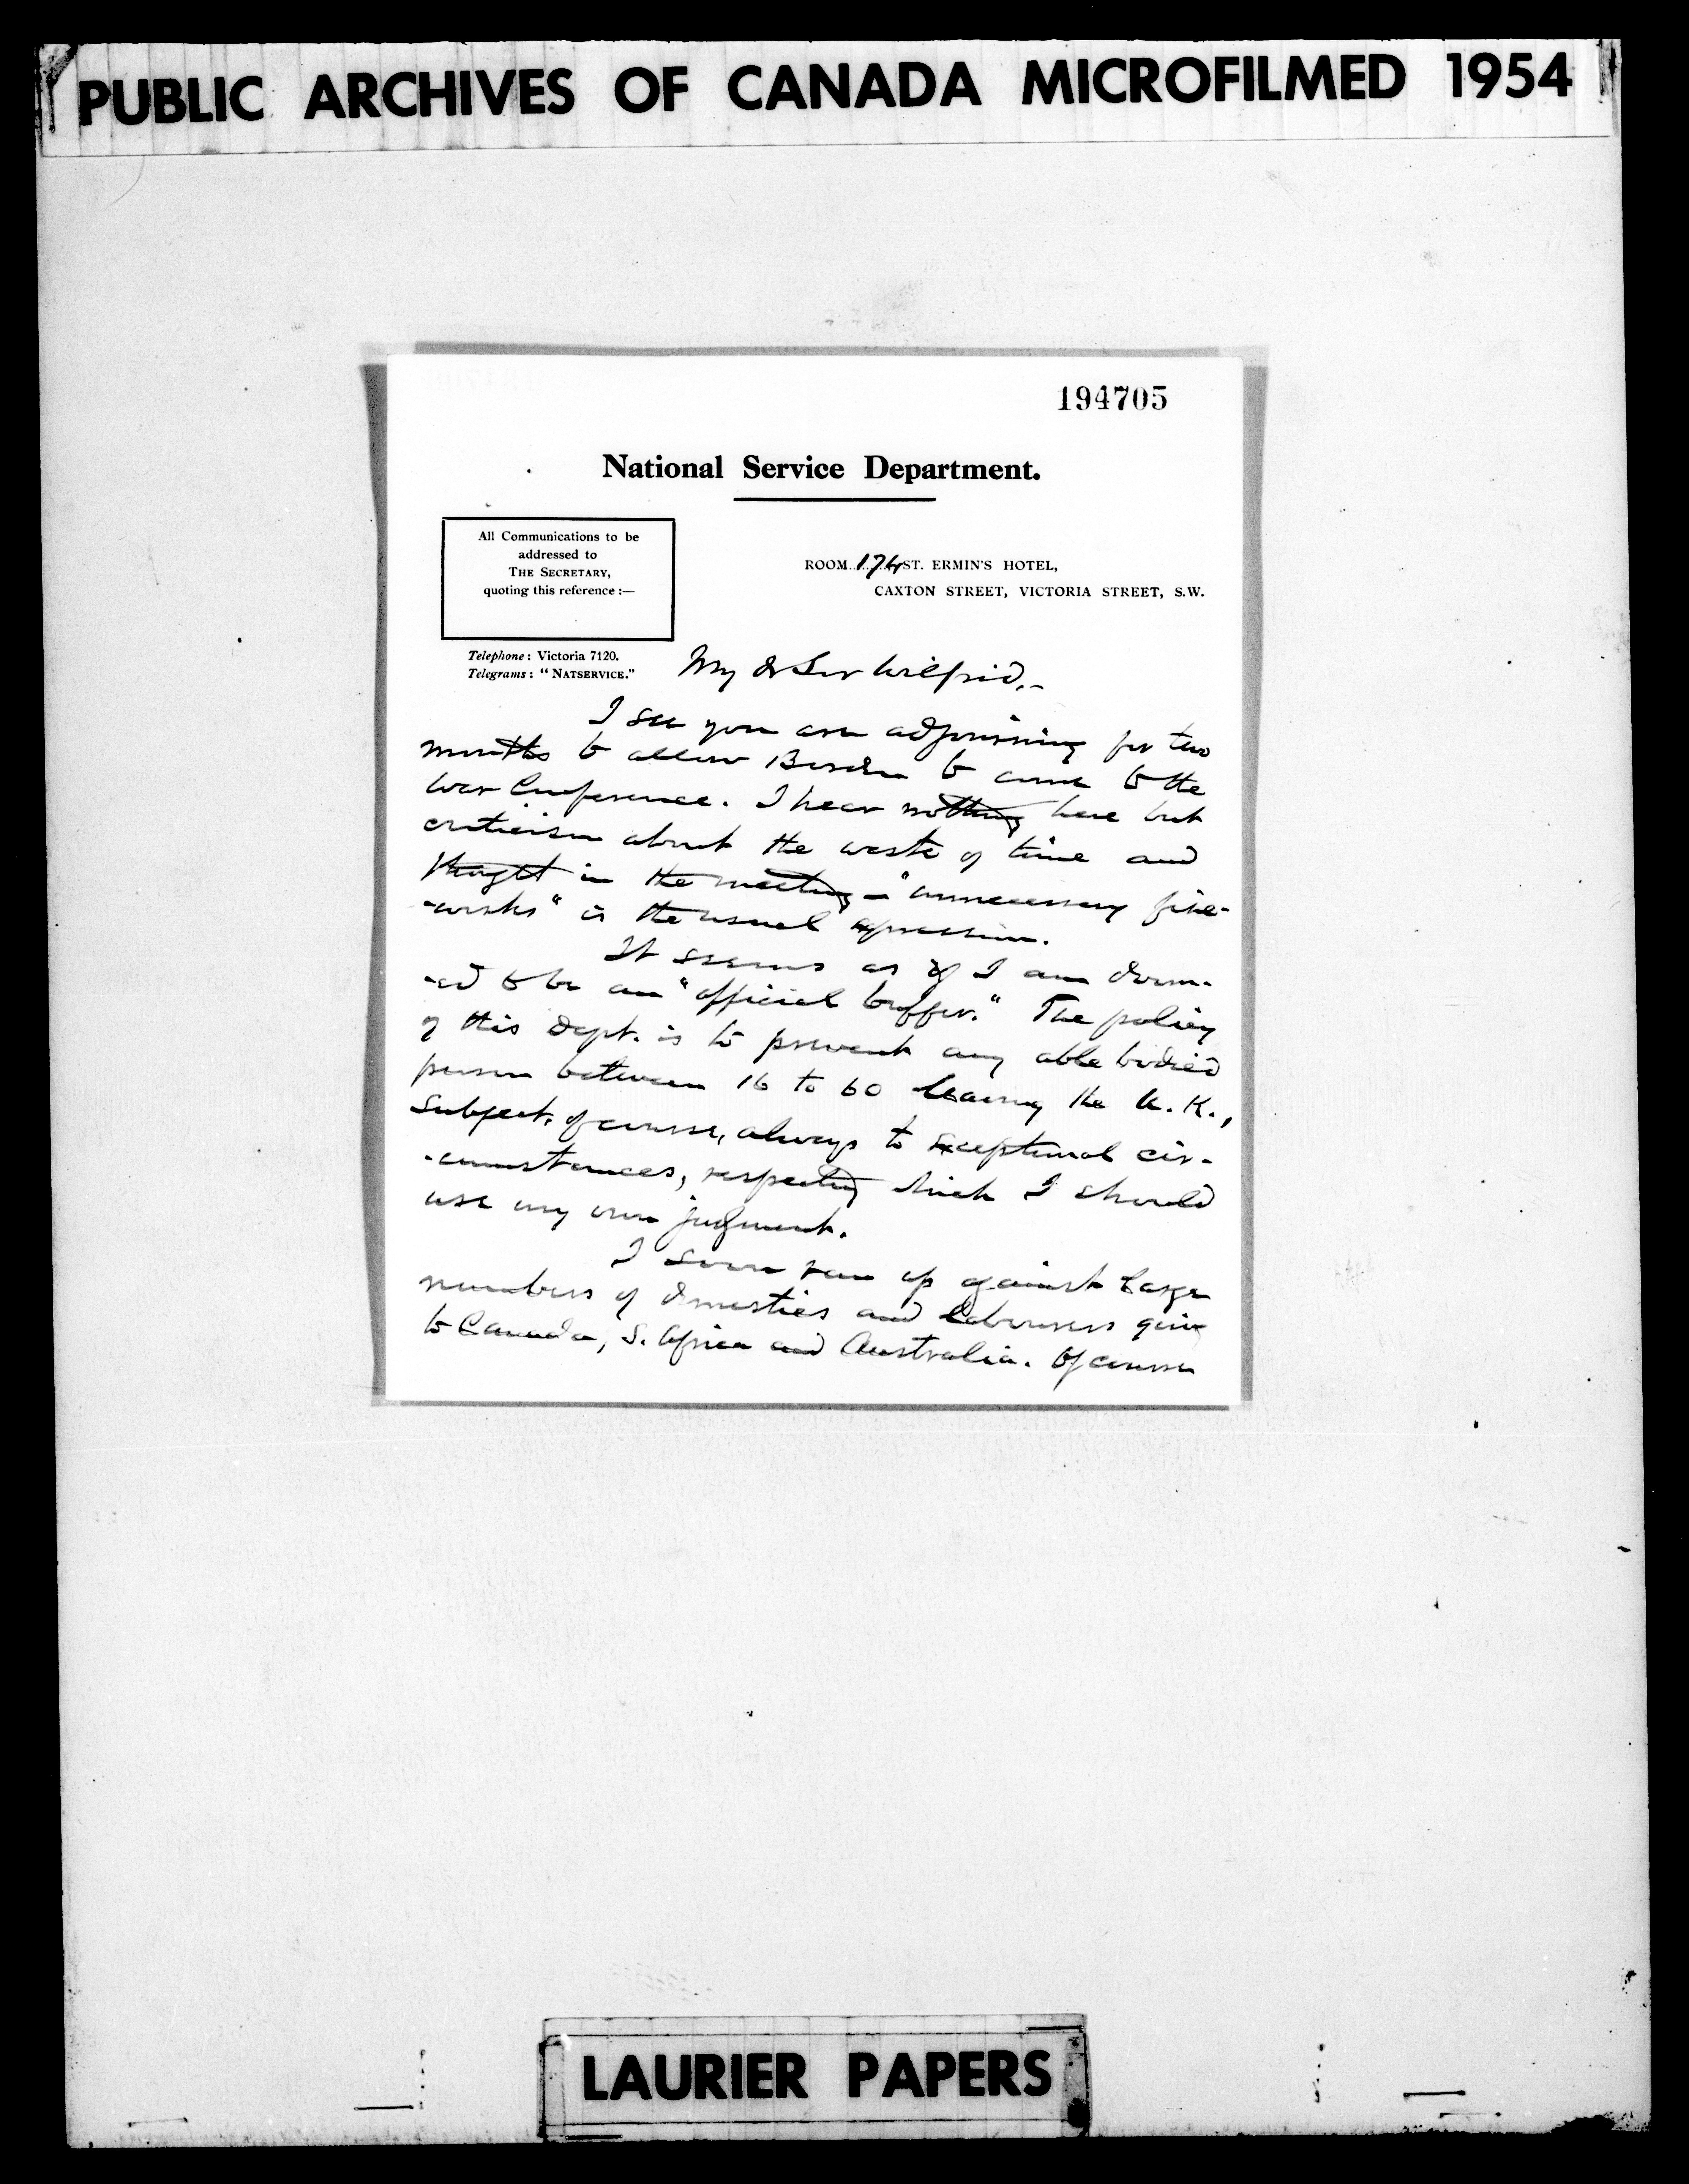 PUBLIC ARCHIVES OF CANADA MICROFILMED 1954
194705
National Service Department.
All Communications to be
addressed to
THE SECRETARY,
quoting this reference :—
ROOM 174 ST. ERMIN'S HOTEL,
CAXTON STREET, VICTORIA STREET, S.W.
Telephone : Victoria 7120.
Telegrams : "NATSERVICE."
My dr Sir Wilfrid,-
I see you are adjourning for two
months to allow Borden to come to the
War Conference. I hear nothing here but
criticism about the waste of time and
thought in the meeting – "unnecessary fire-
-works" is the usual expression.
It seems as if I am doom-
-ed to be an "official buffer." The policy
of this Dept. is to prevent any able bodied
person between 16 to 60 leaving the U.K.,
subject, of course, always to exceptional cir-
-cumstances, respecting which I should
use my own judgment.
I soon ran up against large
numbers of domestics and labourers going
to Canada, S. Africa and Australia. Of course
LAURIER PAPERS